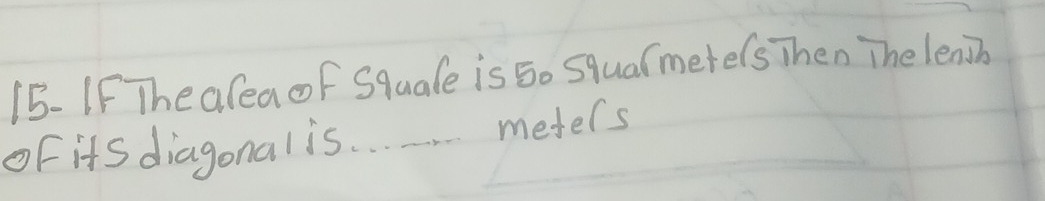 15- IF The area of Square is 50 Squar meters Then The lenth
of its diagonal is...---- meters